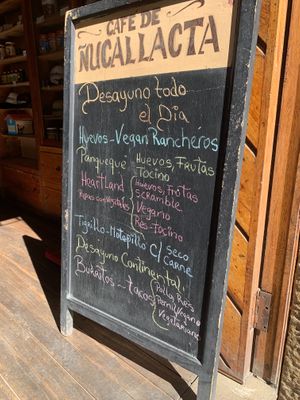 CAFÉ DE
ÑUCALLACTA
Desayuno todo
el Dia
Huevos - Vegan Rancheros
Panqueque { Huevos, Frutas
Tocino
HeartLand { Huevos, Frutas
Papas con Vegetales Scramble
Vegano
Res - Tocino
Tigrillo - Motepillo c/ seco
carne
Desayuno Continental
Burritos - tacos { Pollo, Res
Pernil, Vegano
Vegetariano